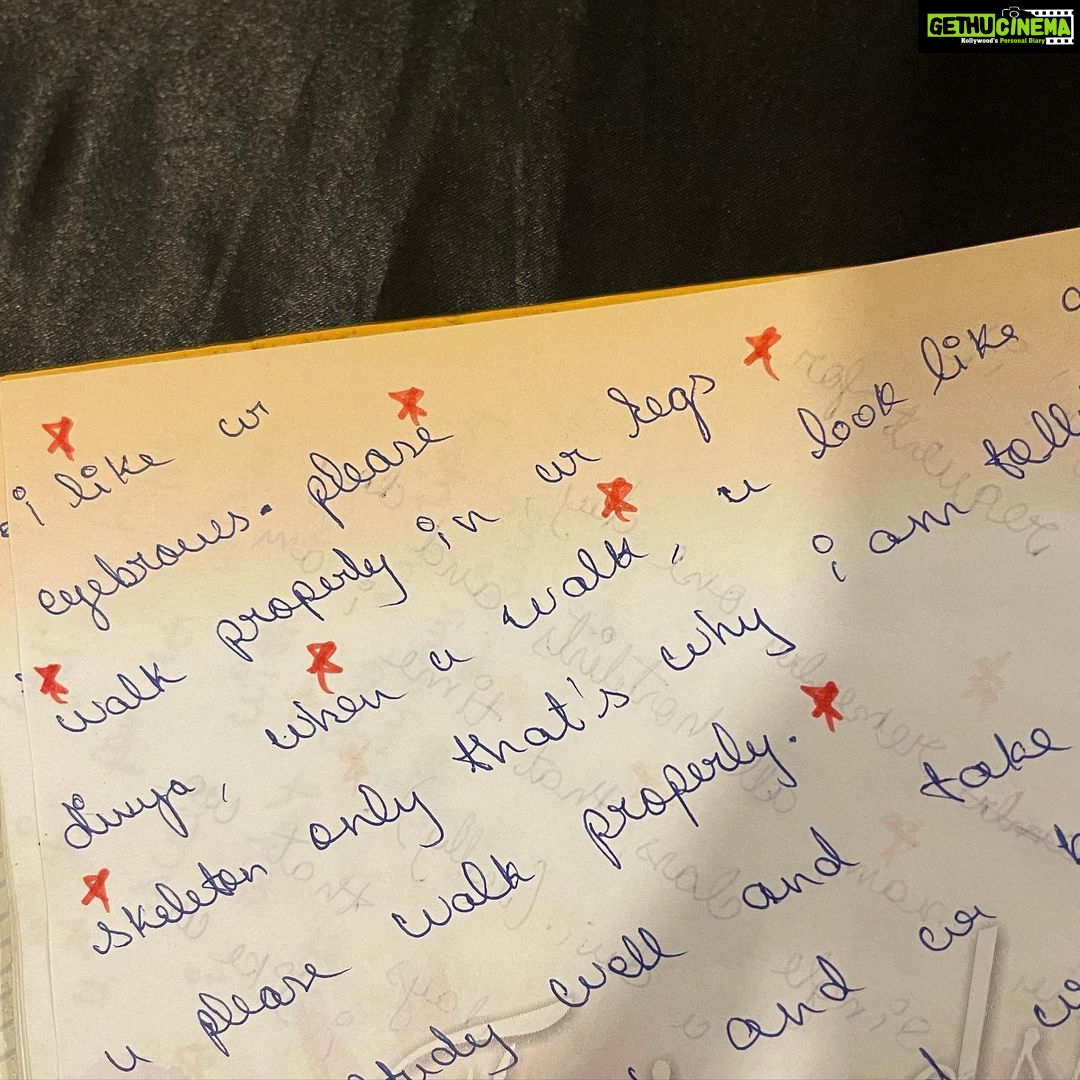 GETHUCINEMA
Kollywood's Personal Diary
i like ur
eyebrows. please
walk properly in ur legs
Divya, when u walk, u look like a
skeleton only that's why i am tell
u please walk properly.
study well and take
and ur